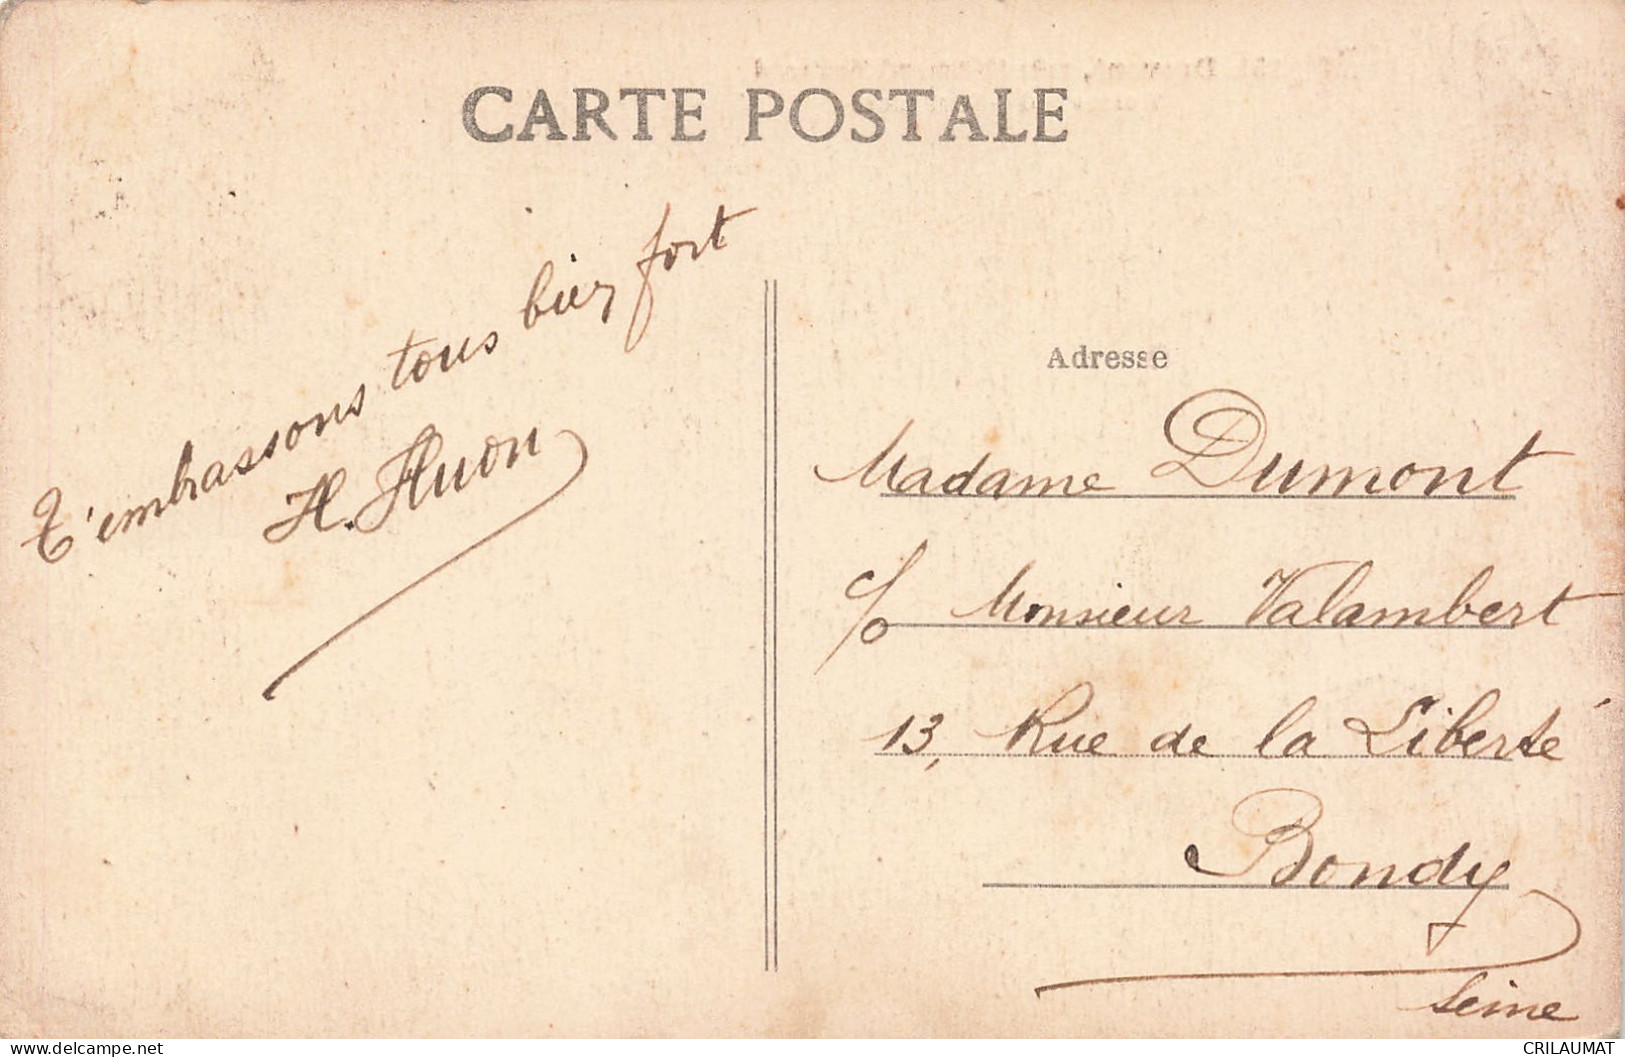 CARTE POSTALE
T'embrassons tous bien fort
H. Huon
Adresse
Madame Dumont
c/o Monsieur Valambert
13, Rue de la Liberté
Bondy
Seine
CRILAUMAT